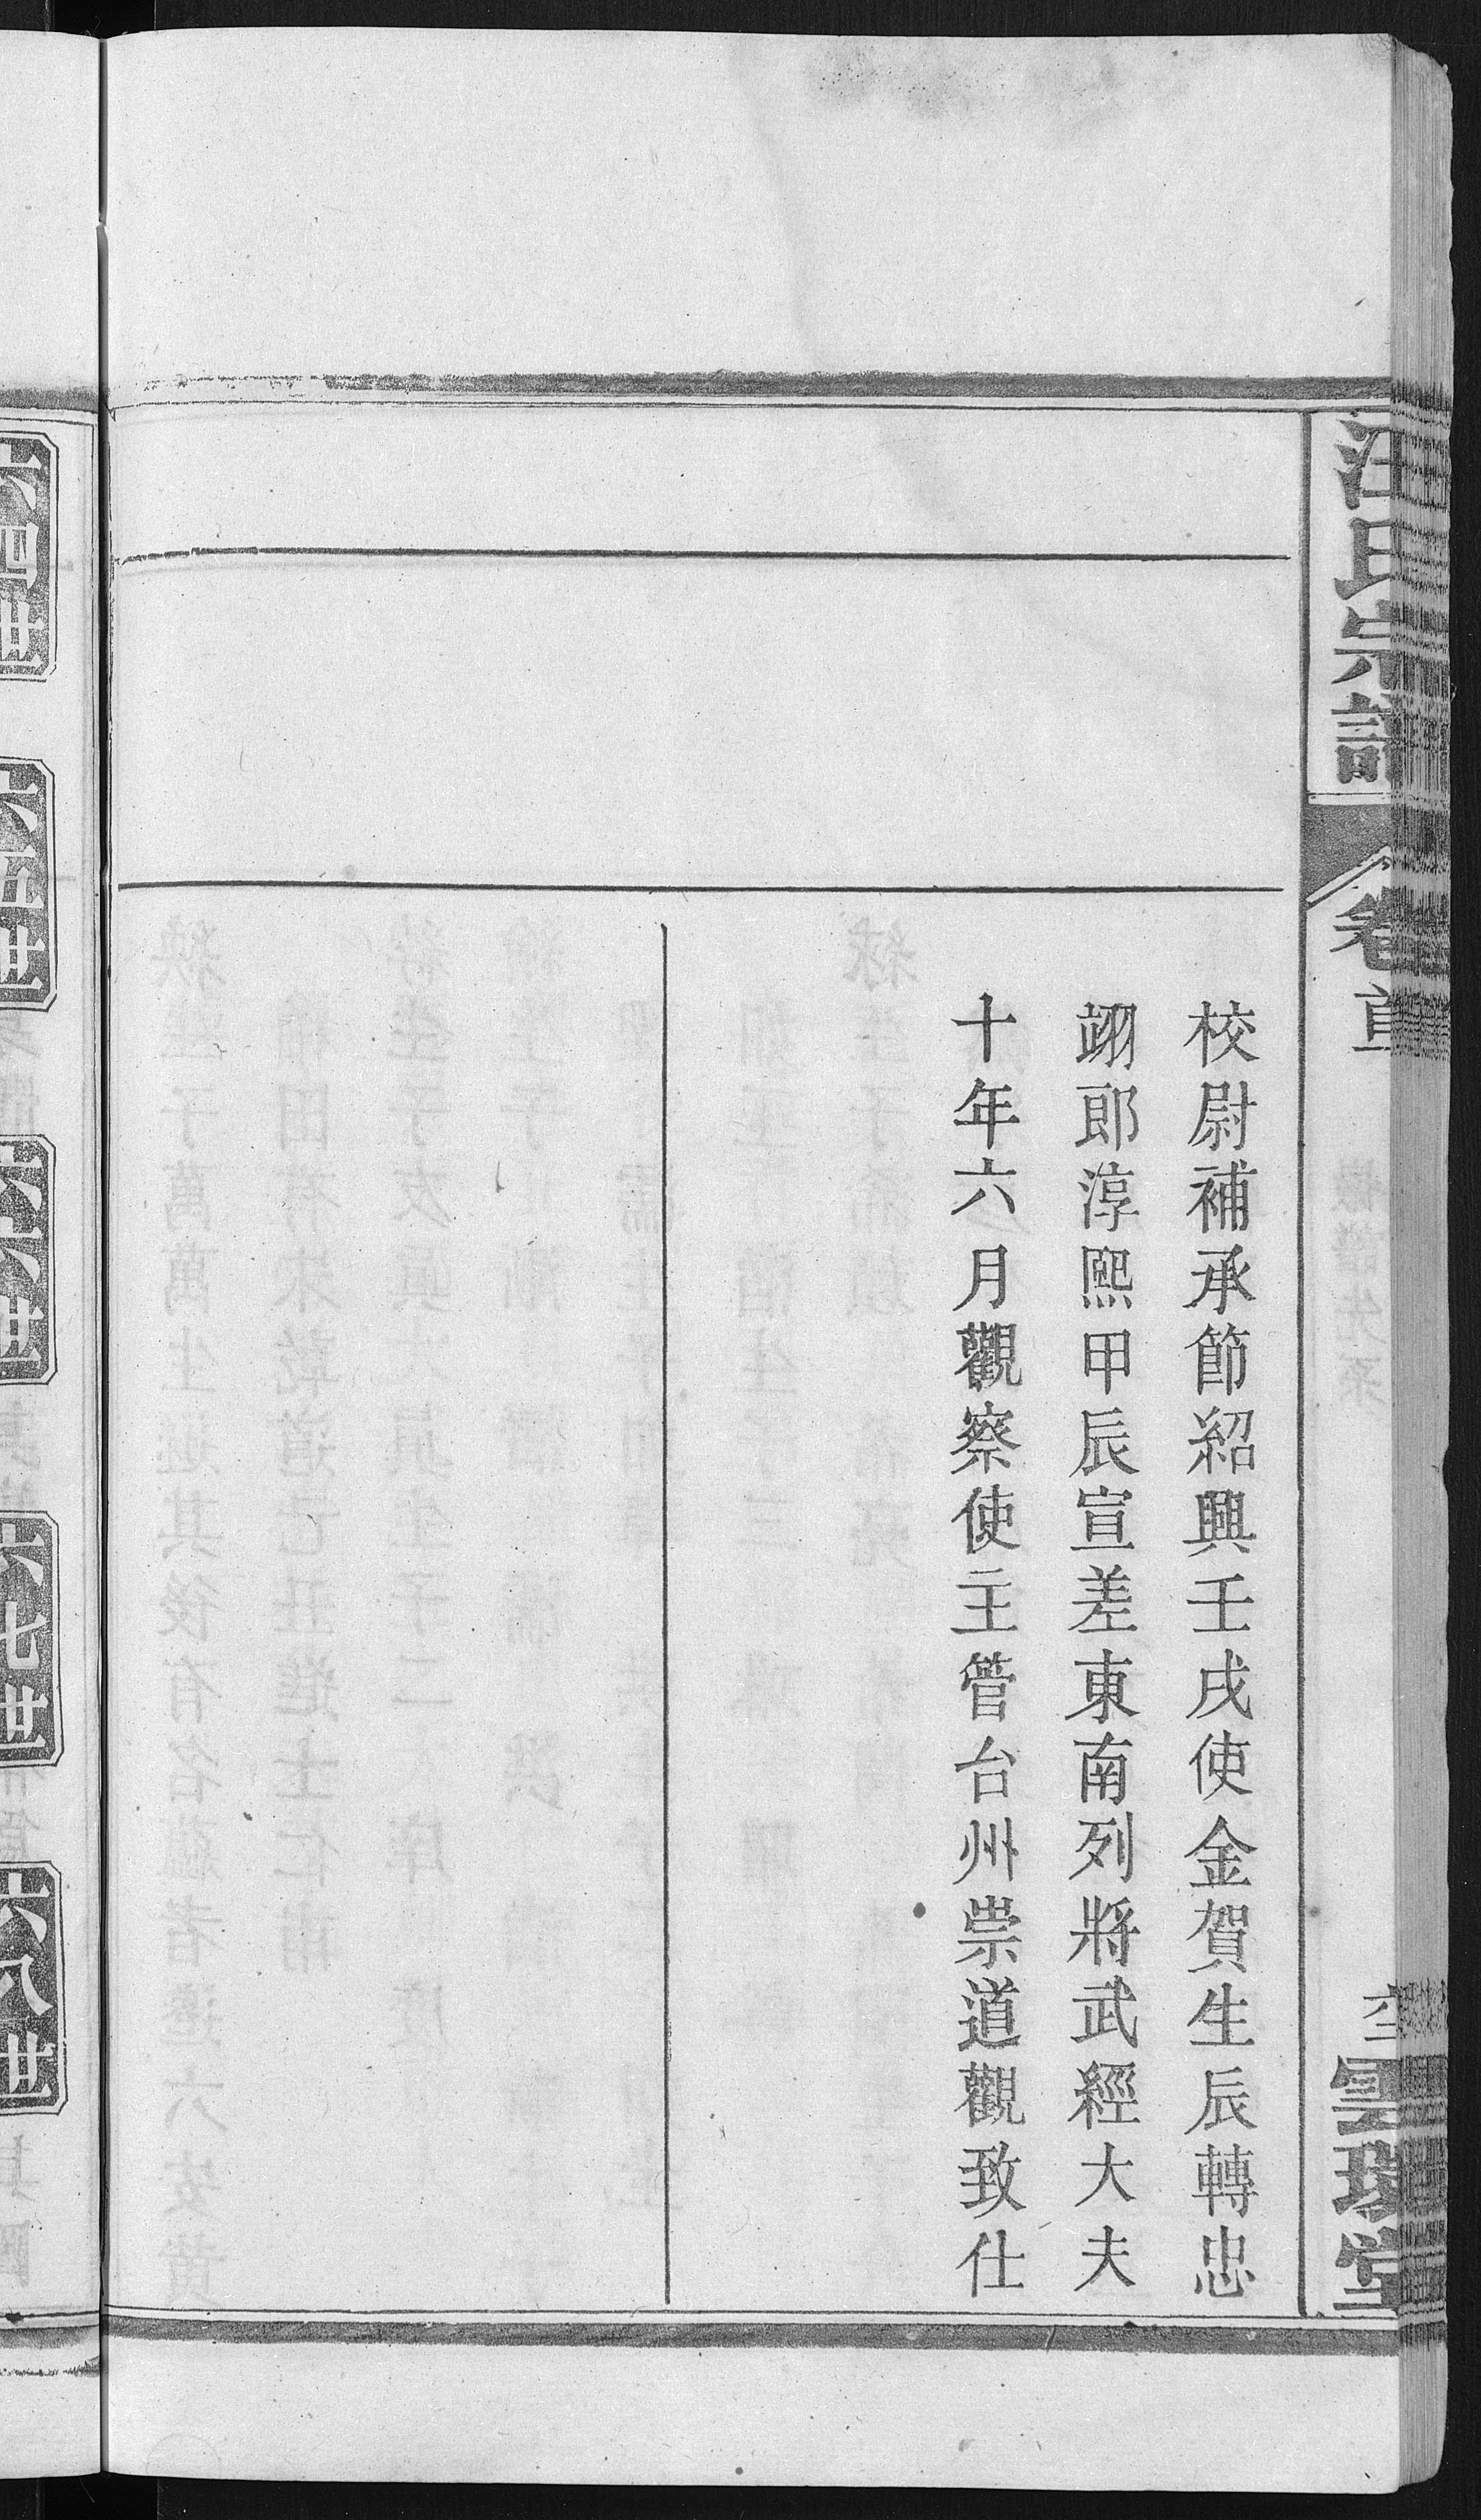 汪氏宗譜
卷首
雲環堂
校尉補承節紹興壬戌使金賀生辰轉忠
翊郎淳熙甲辰宣差東南列將武經大夫
十年六月觀察使主管台州崇道觀致仕
六四世
六五世
六六世
六七世
六八世